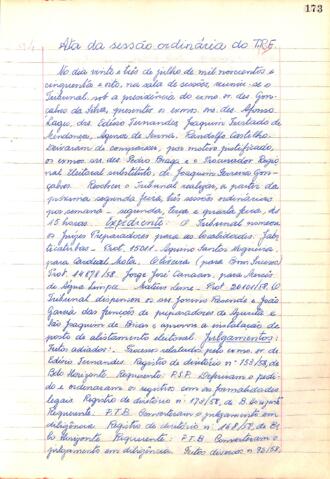 173
Ata da sessão ordinária do T.R.E.
No dia vinte e três de julho de mil novecentos e
cinquenta e oito, na sala de sessões, reuniu-se o
Tribunal, sob a presidência do exmo. sr. des. Gon-
çalves da Silva, presentes os exmos. srs. des. Afonso
Lages, drs. Edésio Fernandes, Joaquim Furtado de
Mendonça, Agenor de Senna, Randolfo
Deixaram de comparecer, por motivo justificado,
os exmos. srs. des. Pedro Braga e o Procurador Regio-
nal eleitoral substituto, dr. Joaquim Ferreira Gon-
çalves. Resolveu o Tribunal realizar, a partir da
próxima segunda feira, três sessões ordinárias
por semana - segunda, terça e quarta feira, às
15 horas. Expediente: O Tribunal nomeou
os Juízes Preparadores para as localidades: Jabo-
ticatubas - Prot. 15011. Santos
para Cardeal Mota, Oliveira (para
Prot. 14878/58. Jorge José para
de Água Limpa. Prot. 20101/58. O
Tribunal dispensou os srs. Resende e João
Garcia das funções de preparadores de e
São Joaquim de e aprovou a instalação de
posto de alistamento eleitoral. Julgamentos:
Feitos adiados: Processos relatados pelo exmo. sr. dr.
Edésio Fernandes. Registro de diretório nº 153/58, de
Belo Horizonte. Requerente: P.S.P. Deferiram o pedi-
do e ordenaram os registros com as formalidades
legais. Registro de diretório nº 178/58, de B. Horizonte
Requerente: P.T.B. Converteram o julgamento em
diligência. Registro de diretório nº 168/58, de Be-
lo Horizonte. Requerente: P.T.B. Converteram o
julgamento em diligência. Feitos diversos nº 90/58,